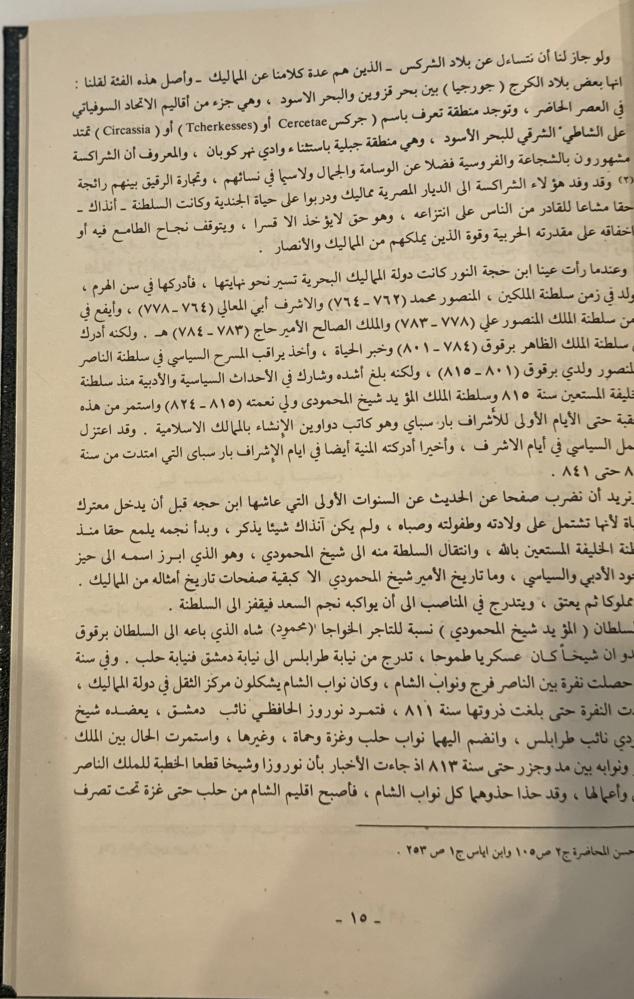 ولو جاز لنا أن نتساءل عن بلاد الشركس - الذين هم عدة كلامنا عن المماليك - وأصل هذه الفئة لقلنا :
انها بعض بلاد الكرج ( جورجيا ) بين بحر قزوين والبحر الاسود ، وهي جزء من أقاليم الاتحاد السوفياتي
في العصر الحاضر ، وتوجد منطقة تعرف باسم ( جركس Cercetae أو (Tcherkesses ) أو ( Circassia ) تمتد
على الشاطىء الشرقي للبحر الأسود ، وهي منطقة جبلية باستثناء وادي نهر كوبان ، والمعروف أن الشراكسة
مشهورون بالشجاعة والفروسية فضلا عن الوسامة والجمال ولاسيما في نسائهم ، وتجارة الرقيق بينهم رائجة
(٣) وقد وفد هؤلاء الشراكسة الى الديار المصرية مماليك ودربوا على حياة الجندية وكانت السلطنة - أنذاك -
حقا مشاعا للقادر من الناس على انتزاعه ، وهو حق لايؤخذ الا قسرا ، ويتوقف نجاح الطامع فيه أو
اخفاقه على مقدرته الحربية وقوة الذين يملكهم من المماليك والأنصار .
وعندما رأت عينا ابن حجة النور كانت دولة المماليك البحرية تسير نحو نهايتها ، فأدركها في سن الهرم ،
ولد في زمن سلطنة الملكين ، المنصور محمد (٧٦٢ - ٧٦٤) والاشرف أبي المعالي (٧٦٤ - ٧٧٨) ، وأيفع في
من سلطنة الملك المنصور علي (٧٧٨ - ٧٨٣) والملك الصالح الأمير حاج (٧٨٣ - ٧٨٤) هـ . ولكنه أدرك
سلطنة الملك الظاهر برقوق (٧٨٤ - ٨٠١) وخبر الحياة ، وأخذ يراقب المسرح السياسي في سلطنة الناصر
لمنصور ولدي برقوق (٨٠١ - ٨١٥) ، ولكنه بلغ أشده وشارك في الأحداث السياسية والأدبية منذ سلطنة
خليفة المستعين سنة ٨١٥ وسلطنة الملك المؤيد شيخ المحمودى ولي نعمته (٨١٥ - ٨٢٤) واستمر من هذه
قبة حتى الأيام الأولى للأشراف بار سباي وهو كاتب دواوين الإنشاء بالممالك الاسلامية . وقد اعتزل
مل السياسي في أيام الاشرف ، وأخيرا أدركته المنية أيضا في ايام الإشراف بار سباى التي امتدت من سنة
٨ حتى ٨٤١ .
نريد أن نضرب صفحا عن الحديث عن السنوات الأولى التي عاشها ابن حجه قبل أن يدخل معترك
اة لأنها تشتمل على ولادته وطفولته وصباه ، ولم يكن آنذاك شيئا يذكر ، وبدأ نجمه يلمع حقا منذ
طنة الخليفة المستعين بالله ، وانتقال السلطة منه الى شيخ المحمودي ، وهو الذي ابرز اسمه الى حيز
ود الأدبي والسياسي ، وما تاريخ الأمير شيخ المحمودي الا كبقية صفحات تاريخ أمثاله من المماليك .
مملوكا ثم يعتق ، ويتدرج في المناصب الى أن يواكبه نجم السعد فيقفز الى السلطنة .
لسلطان ( المؤيد شيخ المحمودي ) نسبة للتاجر الخواجا (محمود) شاه الذي باعه الى السلطان برقوق
دو ان شيخاً كان عسكريا طموحا ، تدرج من نيابة طرابلس الى نيابة دمشق فنيابة حلب . وفي سنة
حصلت نفرة بين الناصر فرج ونواب الشام ، وكان نواب الشام يشكلون مركز الثقل في دولة المماليك ،
ت النفرة حتى بلغت ذروتها سنة ٨١١ ، فتمرد نوروز الحافظي نائب دمشق ، يعضده شيخ
ودي نائب طرابلس ، وانضم اليهما نواب حلب وغزة وحماة ، وغيرها ، واستمرت الحال بين الملك
ونوابه بين مد وجزر حتى سنة ٨١٣ اذ جاءت الأخبار بأن نوروزا وشيخا قطعا الخطبة للملك الناصر
وأعمالها ، وقد حذا حذوهما كل نواب الشام ، فأصبح اقليم الشام من حلب حتى غزة تحت تصرف
حسن المحاضرة ج٢ ص١٠٥ وابن اياس ج١ ص ٢٥٣ .
- ١٥ -